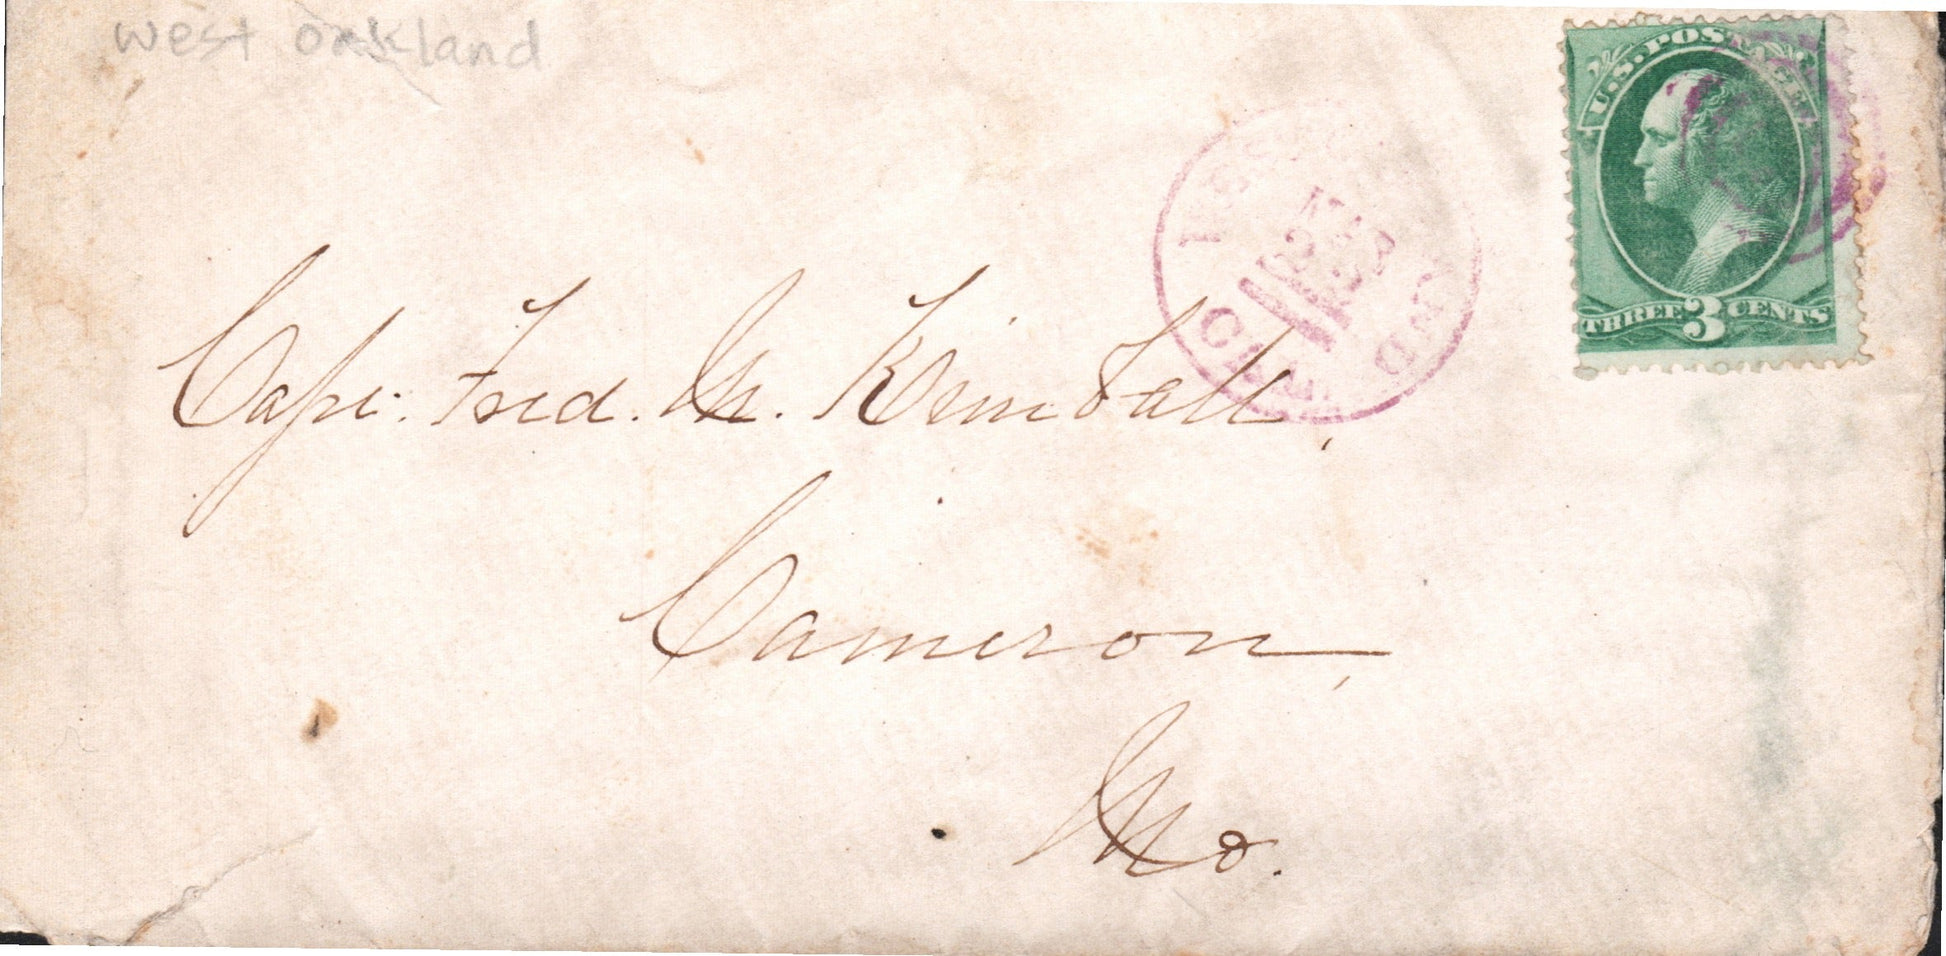 west oakland
U.S. POSTAGE
MAR
23
CAL
Capt. Fred. M. Kimball,
THREE 3 CENTS
Cameron,
Mo.